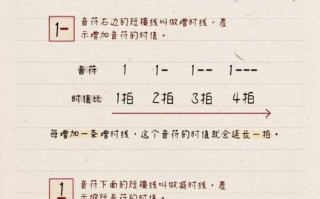 1-
音符右边的短横线叫做增时线，表
示增加音符的时值。
音符 1 1- 1-- 1---
时值比 1拍 2拍 3拍 4拍
每增加一条增时线，这个音符的时值就会延长一拍。
1
音符下面的短横线叫做减时线，表
示缩短音符的时值。